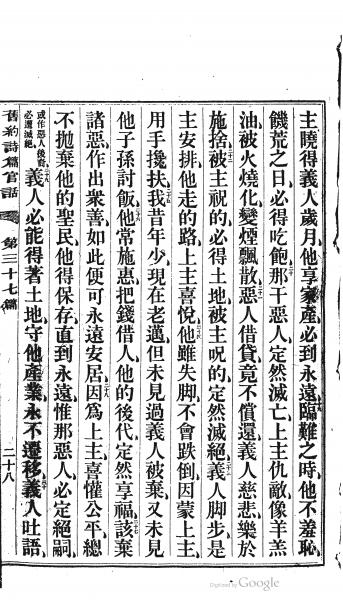 主曉得義人歲月他享家產必到永遠臨難之時他不羞恥
饑荒之日必得吃飽那干惡人定然滅亡上主仇敵像羊羔
油被火燒化變煙飄散惡人借貸竟不償還義人慈悲樂於
施捨被主祝的必得土地被主呪的定然滅絕義人脚步是
主安排他走的路上主喜悅他雖失脚不會跌倒因蒙上主
用手攙扶我昔年少現在老邁但未見過義人被棄又未見
他子孫討飯他常施惠把錢借人他的後代定然享福該棄
諸惡作出衆善如此便可永遠安居因為上主喜懽公平總
不拋棄他的聖民他得保存直到永遠惟那惡人必定絕嗣
或作惡人後裔
必遭滅絕
義人必能得著土地守他產業永不遷移義人吐語
舊約詩篇官話 第三十七篇 二十八
Digitized by Google